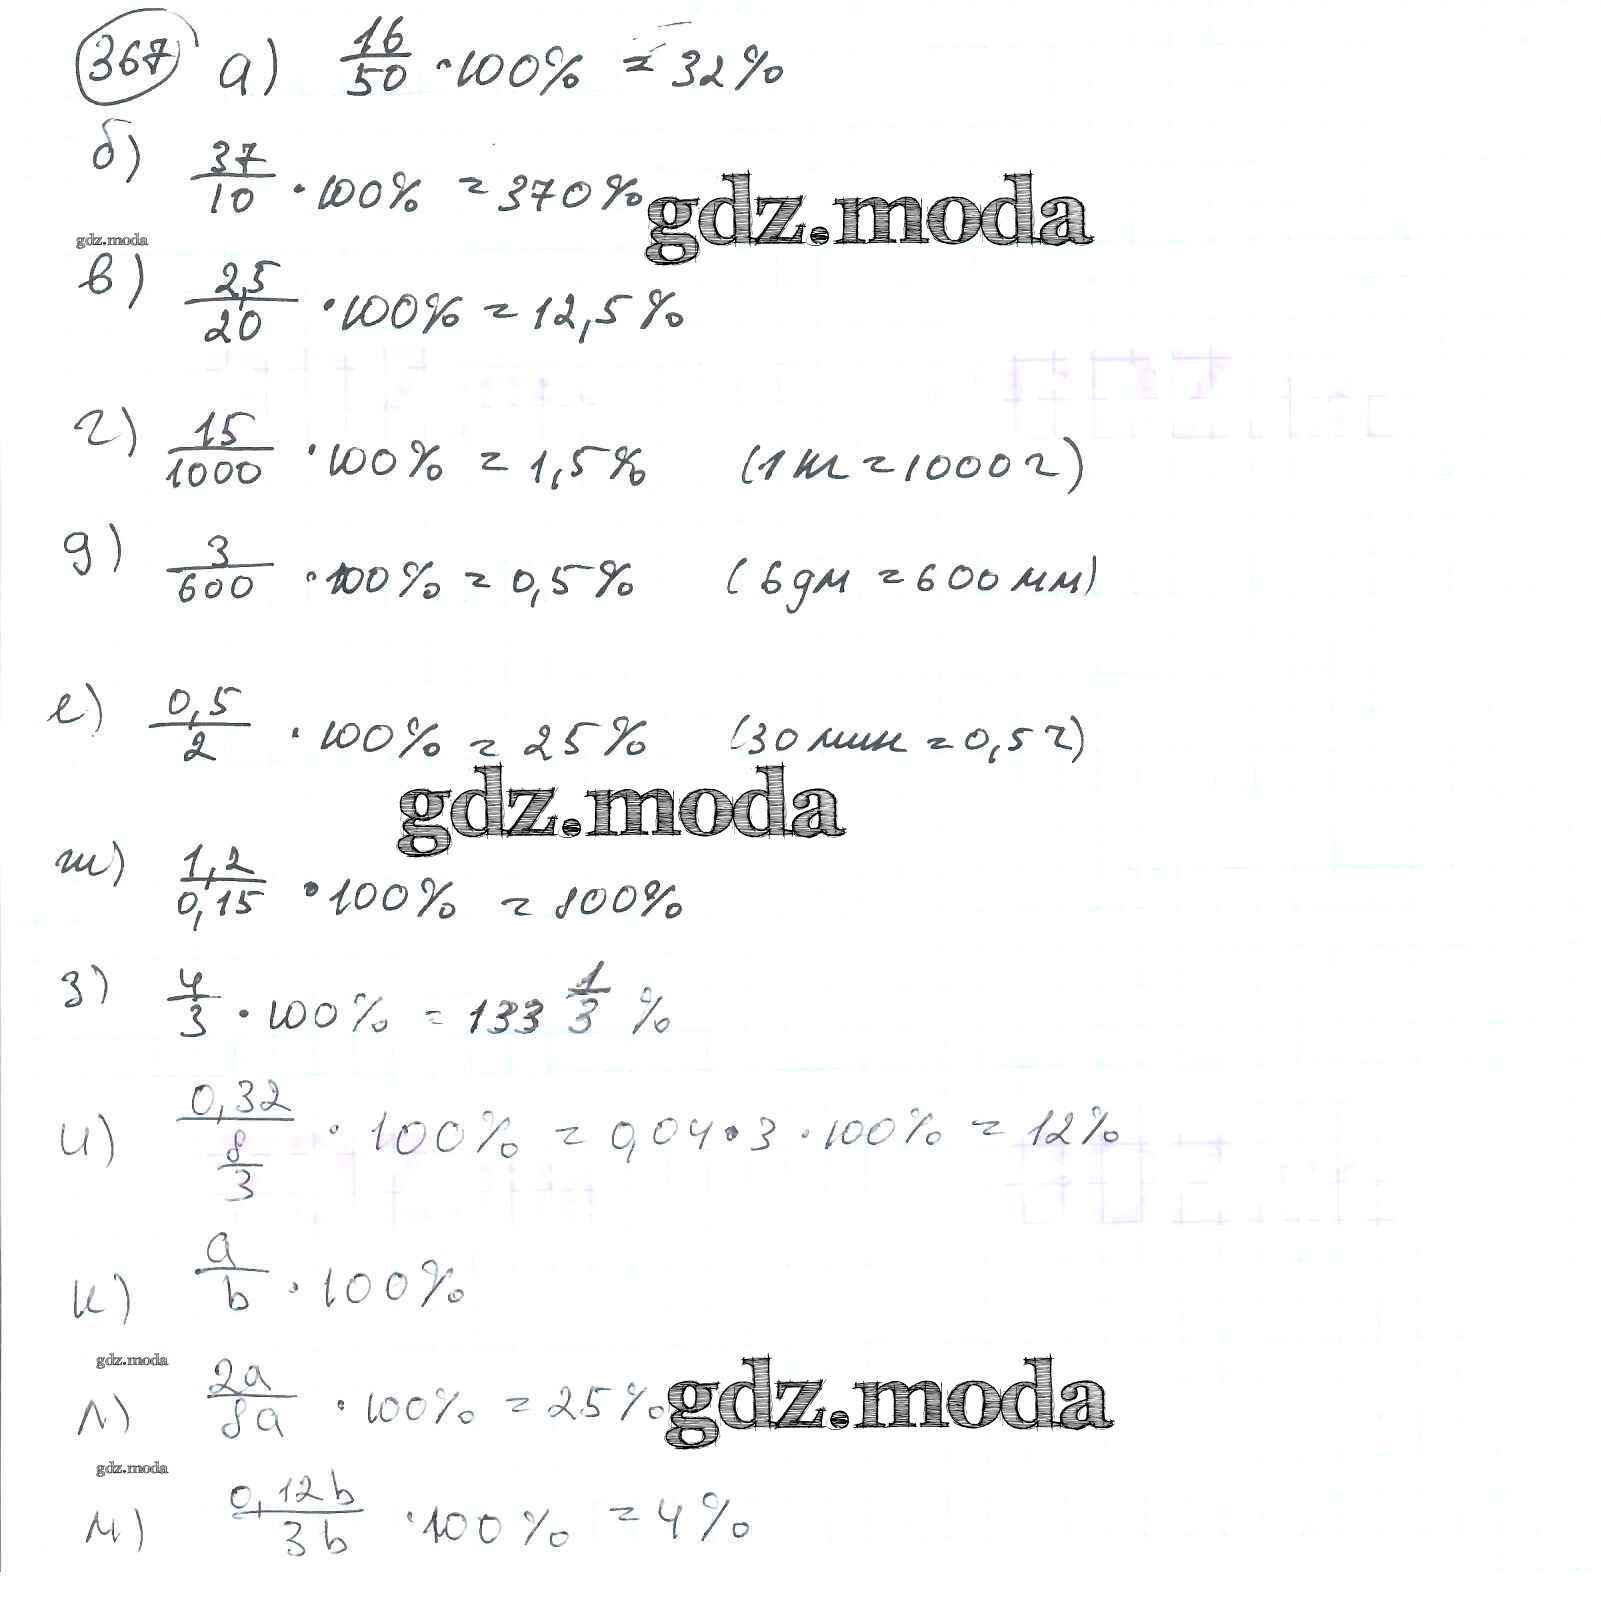 367 а) 16/50 · 100% = 32%
б) 37/10 · 100% = 370%
gdz.moda
gdz.moda
в) 2,5/20 · 100% = 12,5%
г) 15/1000 · 100% = 1,5% (1 кг = 1000 г)
д) 3/600 · 100% = 0,5% (6 дм = 600 мм)
е) 0,5/2 · 100% = 25% (30 мин = 0,5 ч)
gdz.moda
ж) 1,2/0,15 · 100% = 800%
з) 4/3 · 100% = 133 1/3 %
и) 0,32/(8/3) · 100% = 0,04 · 3 · 100% = 12%
к) a/b · 100%
gdz.moda
л) 2a/8a · 100% = 25%
gdz.moda
gdz.moda
м) 0,12b/3b · 100% = 4%